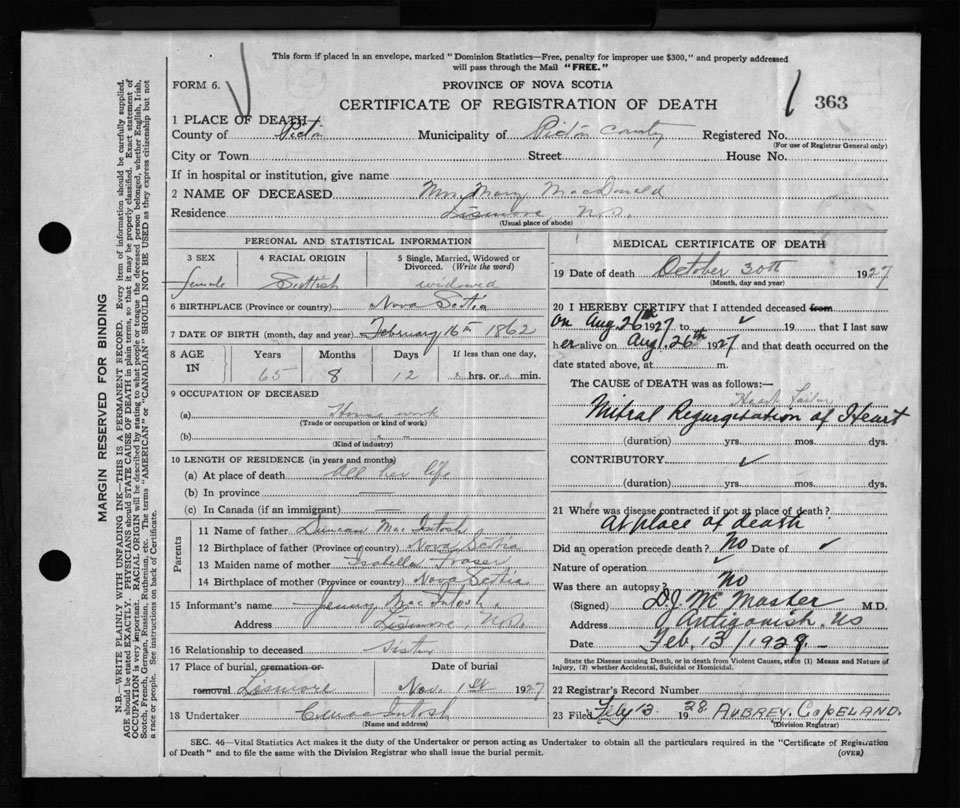 This form if placed in an envelope, marked "Dominion Statistics—Free, penalty for improper use $300," and properly addressed
will pass through the Mail "FREE."
FORM 6.
PROVINCE OF NOVA SCOTIA
CERTIFICATE OF REGISTRATION OF DEATH
363
1 PLACE OF DEATH
County of Pictou Municipality of Pictou County Registered No.
(For use of Registrar General only)
City or Town Street House No.
If in hospital or institution, give name
2 NAME OF DECEASED Mrs. Mary MacDonald
Residence Lismore, N.S.
(Usual place of abode)
PERSONAL AND STATISTICAL INFORMATION
3 SEX 4 RACIAL ORIGIN 5 Single, Married, Widowed or Divorced. (Write the word)
female Scottish widowed
6 BIRTHPLACE (Province or country) Nova Scotia
7 DATE OF BIRTH (month, day and year) February 16th 1862
8 AGE IN Years Months Days If less than one day,
65 8 12 hrs. or min.
9 OCCUPATION OF DECEASED
(a) House work
(Trade or occupation or kind of work)
(b)
(Kind of industry)
10 LENGTH OF RESIDENCE (in years and months)
(a) At place of death All her life
(b) In province —
(c) In Canada (if an immigrant) —
Parents
11 Name of father Duncan MacIntosh
12 Birthplace of father (Province or country) Nova Scotia
13 Maiden name of mother Isabella Fraser
14 Birthplace of mother (Province or country) Nova Scotia
15 Informant's name Jenny MacIntosh
Address Lismore, N.S.
16 Relationship to deceased Sister
17 Place of burial, cremation or removal Lismore Date of burial Nov. 1st 1927
18 Undertaker C. MacIntosh
(Name and address)
MEDICAL CERTIFICATE OF DEATH
19 Date of death October 30th 1927
(Month, day and year)
20 I HEREBY CERTIFY that I attended deceased from
on Aug. 26th 1927 to 19 that I last saw
her alive on Aug. 26th 1927 and that death occurred on the
date stated above, at m.
The CAUSE OF DEATH was as follows:—
Heart Failure
Mitral Regurgitation of Heart
(duration) yrs. mos. dys.
CONTRIBUTORY
(duration) yrs. mos. dys.
21 Where was disease contracted if not at place of death?
At place of death
Did an operation precede death? No Date of
Nature of operation
Was there an autopsy? No
(Signed) D.J. McMaster M.D.
Address Antigonish. NS
Date Feb. 13/1928
State the Disease causing Death, or in death from Violent Causes, state (1) Means and Nature of
Injury, (2) whether Accidental, Suicidal or Homicidal.
22 Registrar's Record Number
23 Filed Feb 13. 1928. AUBREY. COPELAND.
(Division Registrar)
SEC. 46—Vital Statistics Act makes it the duty of the Undertaker or person acting as Undertaker to obtain all the particulars required in the "Certificate of Registration
of Death" and to file the same with the Division Registrar who shall issue the burial permit. (OVER)
MARGIN RESERVED FOR BINDING
N.B.—WRITE PLAINLY WITH UNFADING INK—THIS IS A PERMANENT RECORD. Every item of information should be carefully supplied.
AGE should be stated EXACTLY. PHYSICIANS should STATE CAUSE OF DEATH in plain terms, so that it may be properly classified. Exact statement of
OCCUPATION is very important. RACIAL ORIGIN will be described by stating to what people or tongue the deceased person belonged, whether English, Irish,
Scotch, French, German, Russian, Ruthenian, etc. The terms "AMERICAN" or "CANADIAN" SHOULD NOT BE USED as they express citizenship but not
a race or people. See instructions on back of Certificate.